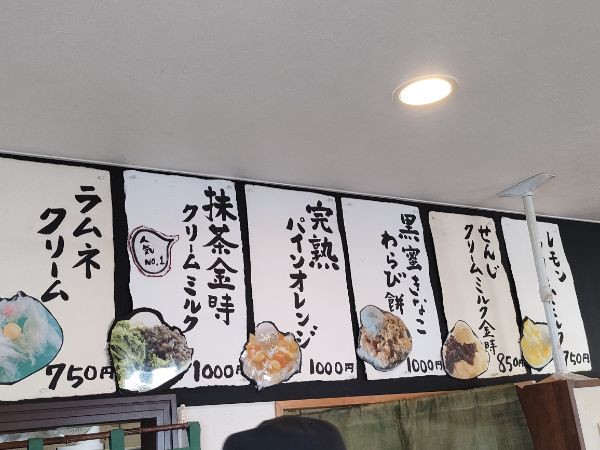 ラムネ
クリーム
750円
人気
NO.1
抹茶金時
クリームミルク
1000円
完熟
パインオレンジ
1000円
黒蜜きなこ
わらび餅
1000円
せんじ
クリームミルク金時
850円
レモン
ミルク
750円